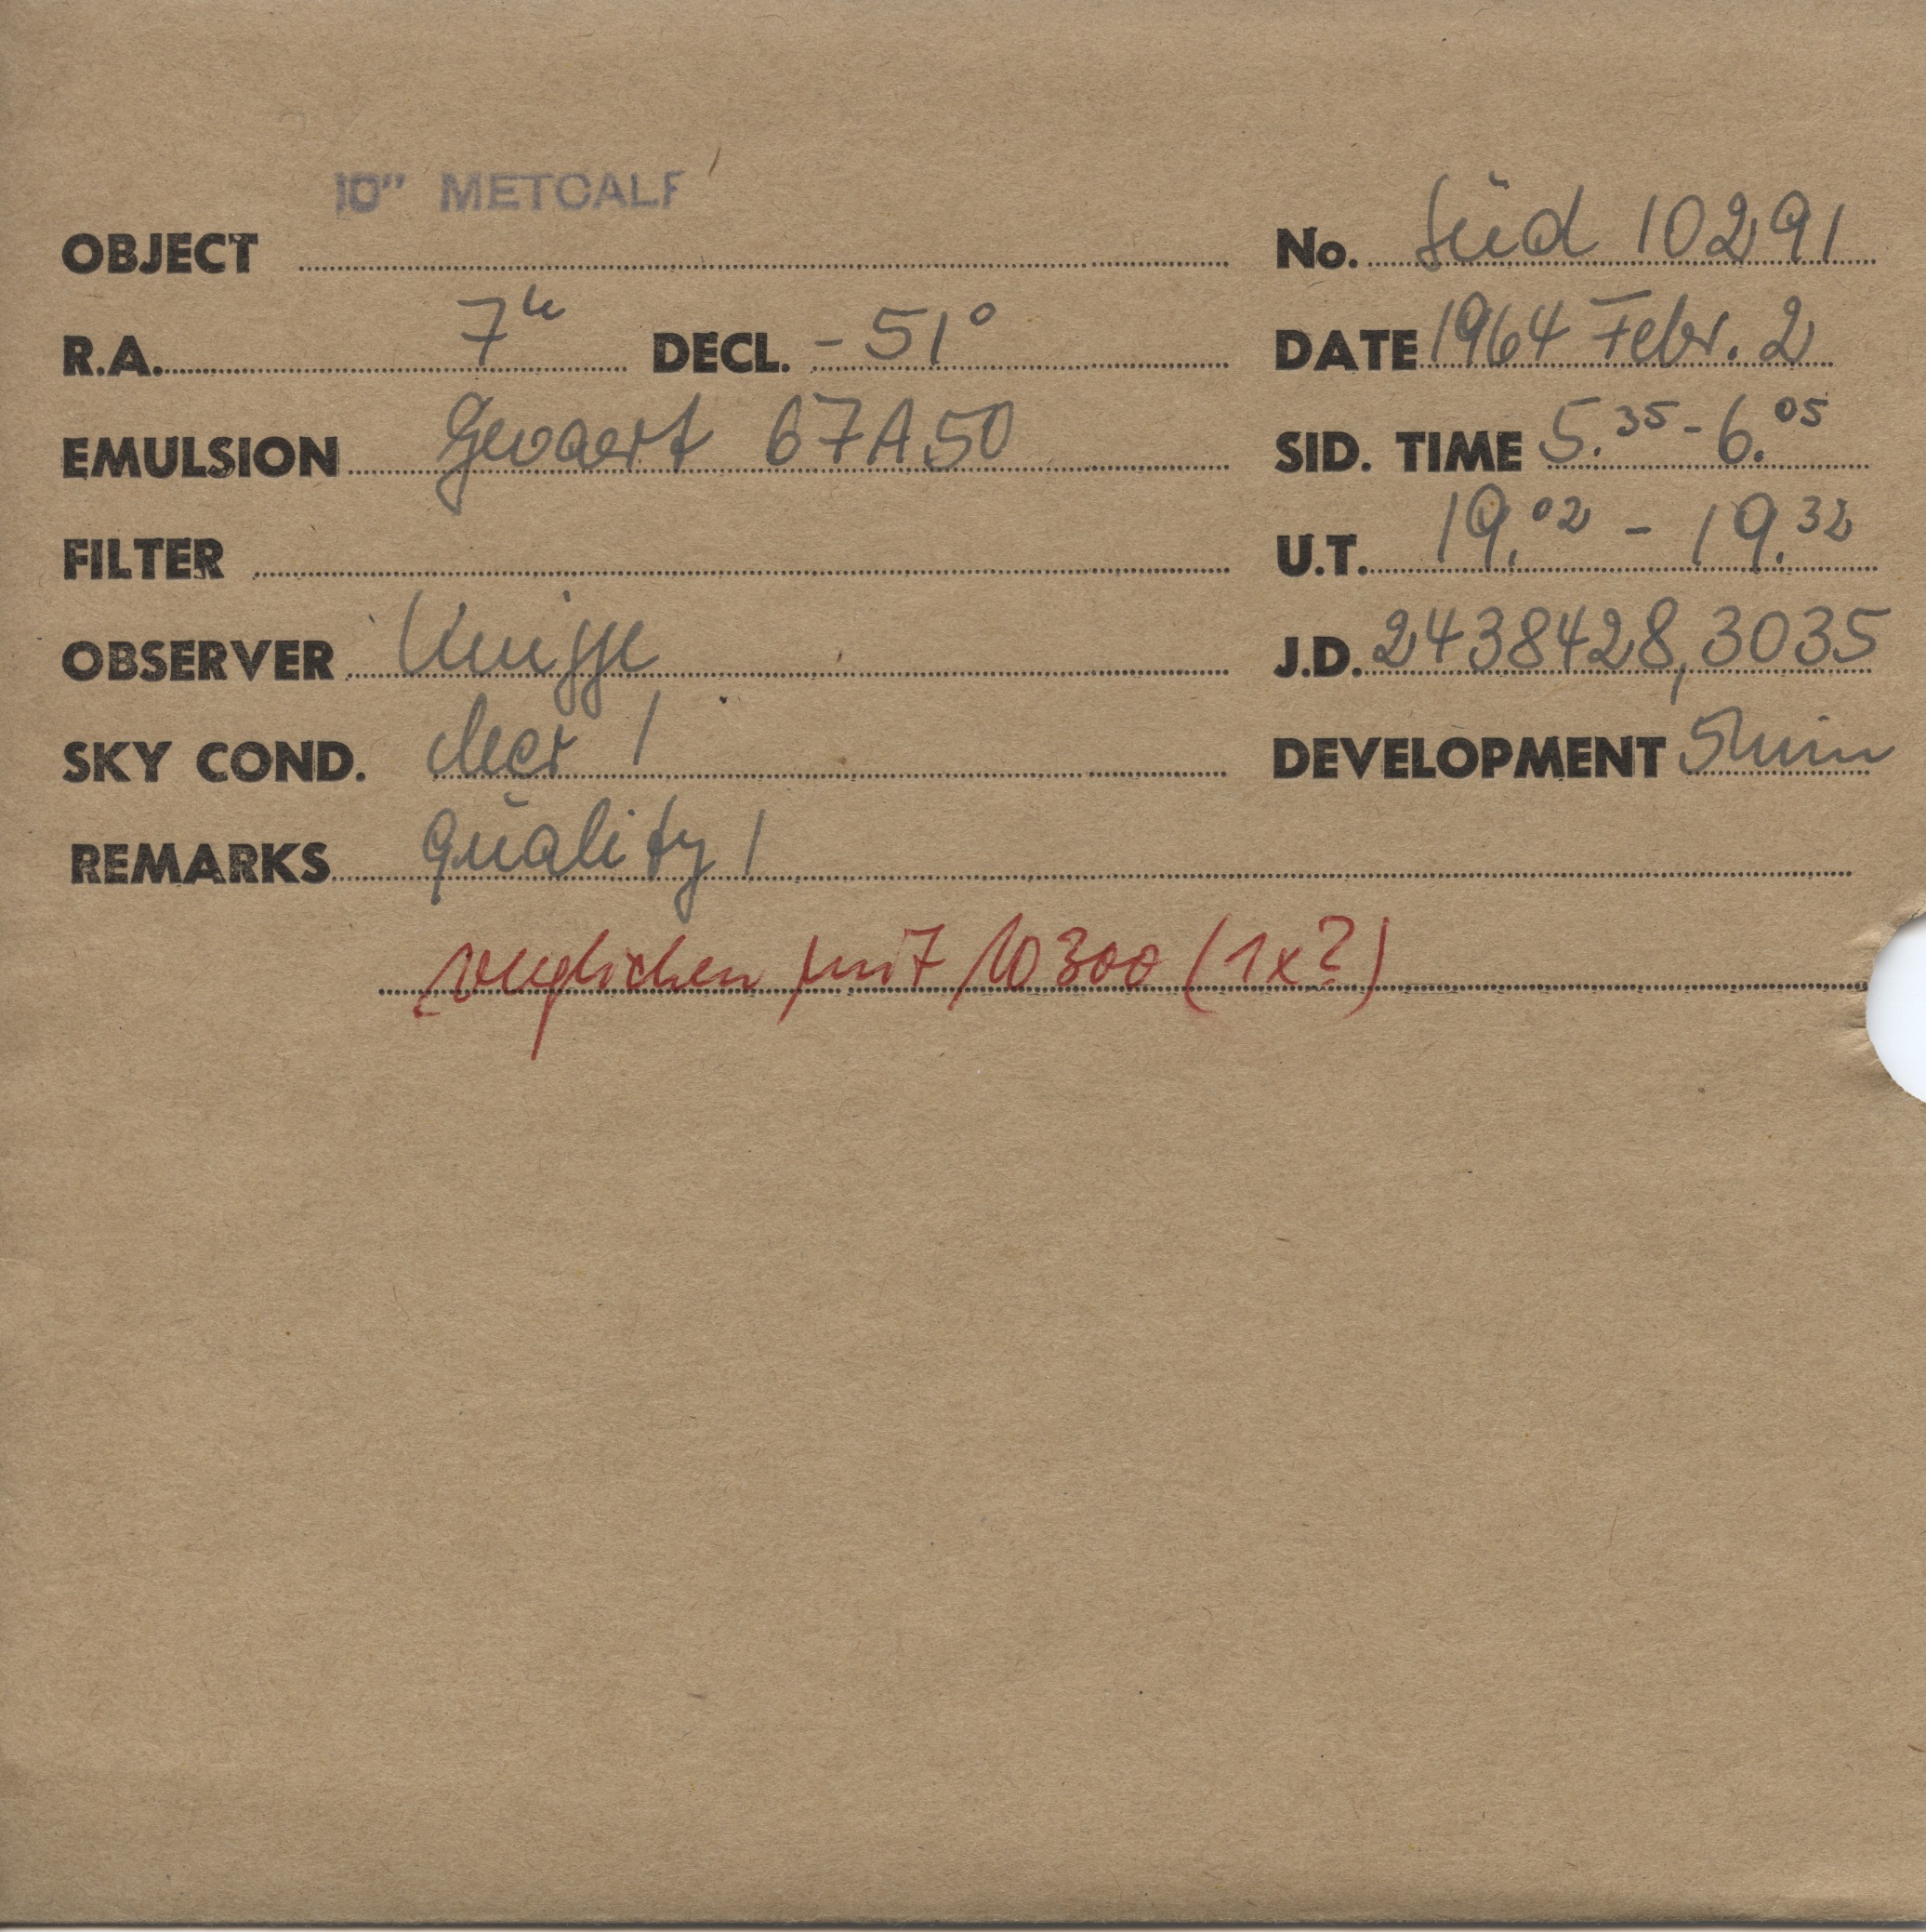 10" METCALF
OBJECT No. Süd 10291
R.A. 7h DECL. -51° DATE 1964 Febr. 2
EMULSION Gevaert 67A50 SID. TIME 5.35 - 6.05
FILTER U.T. 19.02 - 19.32
OBSERVER Knigge J.D. 2438428,3035
SKY COND. clear 1 DEVELOPMENT 5min
REMARKS quality 1
verglichen mit 10300 (1x?)